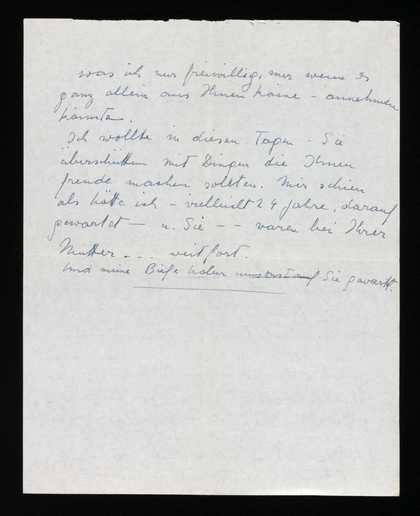 was ich nur freiwillig, nur wenn es
ganz allein aus Ihnen käme – annehmen
könnte.
Ich wollte in diesen Tagen – Sie
überschütten mit Dingen die Ihnen
freude machen sollten. Mir schien
als hätte ich – vielleicht 24 Jahre, darauf
gewartet – u. Sie – – waren bei Ihrer
Mutter . – . weit fort.
Und meine Briefe haben auf Sie gewartet.